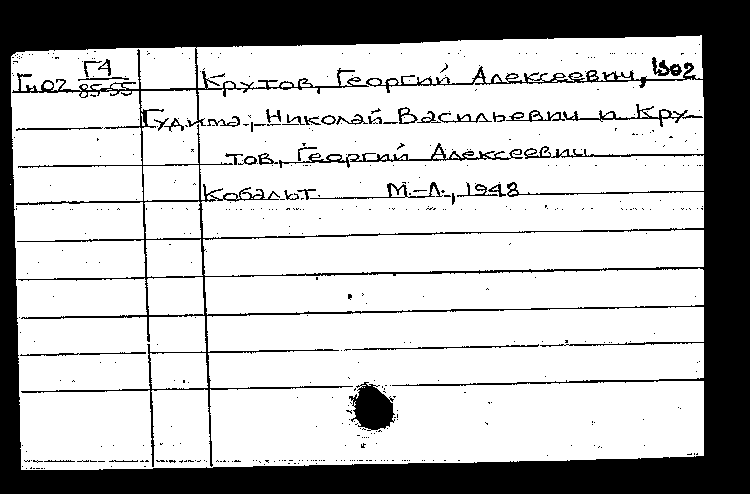 Гл02 Г4/85-55 Крутов, Георгий Алексеевич, 1902
Гудима, Николай Васильевич и Кру-
тов, Георгий Алексеевич.
Кобальт. М.-Л., 1948